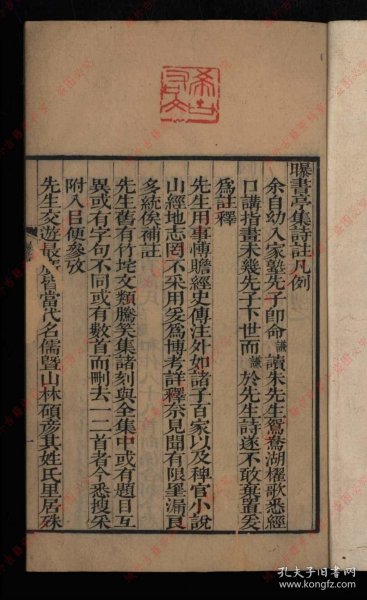 曝書亭集詩註凡例
余自幼入家塾先子卽命謙讀朱先生鴛鴦湖櫂歌悉經
口講指畫未幾先子下世而謙於先生詩遂不敢棄置爰
爲註釋
先生用事博贍經史傳注外如諸子百家以及稗官小說
山經地志罔不采用爰爲博考詳釋奈見聞有限罣漏良
多統俟補註
先生舊有竹垞文類騰笑集諸刻與全集中或有題目互
異或有字句不同或有數首而刪去一二首者今悉搜采
附入以便參攷
先生交遊最廣當代名儒曁山林碩彥其姓氏里居殊
孔夫子旧书网